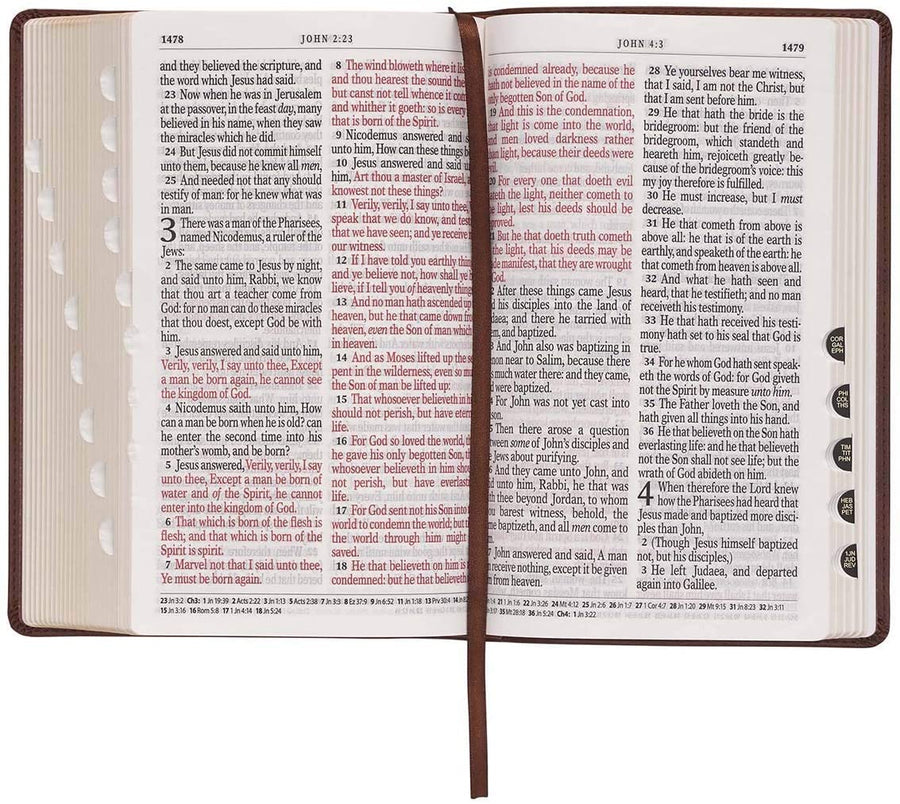 1478
JOHN 2:23
and they believed the scripture, and
the word which Jesus had said.
23 Now when he was in Jerusalem
at the passover, in the feast day, many
believed in his name, when they saw
the miracles which he did.
24 But Jesus did not commit himself
unto them, because he knew all men,
25 And needed not that any should
testify of man: for he knew what was
in man.
3 There was a man of the Pharisees,
named Nicodemus, a ruler of the
Jews:
2 The same came to Jesus by night,
and said unto him, Rabbi, we know
that thou art a teacher come from
God: for no man can do these miracles
that thou doest, except God be with
him.
3 Jesus answered and said unto him,
Verily, verily, I say unto thee, Except
a man be born again, he cannot see
the kingdom of God.
4 Nicodemus saith unto him, How
can a man be born when he is old? can
he enter the second time into his
mother's womb, and be born?
5 Jesus answered, Verily, verily, I say
unto thee, Except a man be born of
water and of the Spirit, he cannot
enter into the kingdom of God.
6 That which is born of the flesh is
flesh; and that which is born of the
Spirit is spirit.
7 Marvel not that I said unto thee,
Ye must be born again.
8 The wind bloweth where it
and thou hearest the sound
but canst not tell whence it
and whither it goeth: so is every
that is born of the Spirit.
9 Nicodemus answered and
unto him, How can these things
10 Jesus answered and said
him, Art thou a master of Israel,
knowest not these things?
11 Verily, verily, I say unto thee,
speak that we do know, and
that we have seen; and ye receive
our witness.
12 If I have told you earthly
and ye believe not, how shall ye
lieve, if I tell you of heavenly
13 And no man hath ascended
heaven, but he that came down
heaven, even the Son of man which
in heaven.
14 And as Moses lifted up the
pent in the wilderness, even so
the Son of man be lifted up:
15 That whosoever believeth in
should not perish, but have
life.
16 For God so loved the world,
he gave his only begotten Son,
whosoever believeth in him
not perish, but have
life.
17 For God sent not his Son into
world to condemn the world; but
the world through him might
saved.
18 He that believeth on him is
condemned: but he that believeth
23 Jn 3:2 Ch3: 1 Jn 19:39 2 Acts 2:22 3 Jn 1:13 5 Acts 2:38 7 Jn 3:3 8 Ez 37:9 9 Jn 6:52 11 Jn 1:18 13 Prv 30:4
15 Jn 3:16 16 Rom 5:8 17 1 Jn 4:14 18 Jn 5:24
JOHN 4:3
1479
condemned already, because he
not believed in the name of the
begotten Son of God.
And this is the condemnation,
light is come into the world,
men loved darkness rather
light, because their deeds were
For every one that doeth evil
the light, neither cometh to
light, lest his deeds should be
But he that doeth truth cometh
the light, that his deeds may be
manifest, that they are wrought
After these things came Jesus
his disciples into the land of
and there he tarried with
and baptized.
And John also was baptizing in
near to Salim, because there
much water there: and they came,
were baptized.
For John was not yet cast into
Then there arose a question
some of John's disciples and
Jews about purifying.
And they came unto John, and
unto him, Rabbi, he that was
thee beyond Jordan, to whom
barest witness, behold, the
baptizeth, and all men come to
John answered and said, A man
receive nothing, except it be given
from heaven.
28 Ye yourselves bear me witness,
that I said, I am not the Christ, but
that I am sent before him.
29 He that hath the bride is the
bridegroom: but the friend of the
bridegroom, which standeth and
heareth him, rejoiceth greatly be-
cause of the bridegroom's voice: this
my joy therefore is fulfilled.
30 He must increase, but I must
decrease.
31 He that cometh from above is
above all: he that is of the earth is
earthly, and speaketh of the earth: he
that cometh from heaven is above all.
32 And what he hath seen and
heard, that he testifieth; and no man
receiveth his testimony.
33 He that hath received his testi-
mony hath set to his seal that God is
true.
34 For he whom God hath sent speak-
eth the words of God: for God giveth
not the Spirit by measure unto him.
35 The Father loveth the Son, and
hath given all things into his hand.
36 He that believeth on the Son hath
everlasting life: and he that believeth
not the Son shall not see life; but the
wrath of God abideth on him.
4 When therefore the Lord knew
how the Pharisees had heard that
Jesus made and baptized more disci-
ples than John,
2 (Though Jesus himself baptized
not, but his disciples,)
3 He left Judaea, and departed
again into Galilee.
21 1 Jn 1:6 22 Jn 3:26 24 Mt 4:12 25 Jn 2:6 26 Jn 1:7 27 1 Cor 4:7 28 Jn 1:20 29 Mt 9:15 31 Jn 8:23 32 Jn 3:11
35 Mt 28:18 36 Jn 5:24 Ch4: 1 Jn 3:22
COR
GAL
EPH
PHI
COL
THS
TIM
TIT
PHN
HEB
JAS
PET
1JN
JUD
REV